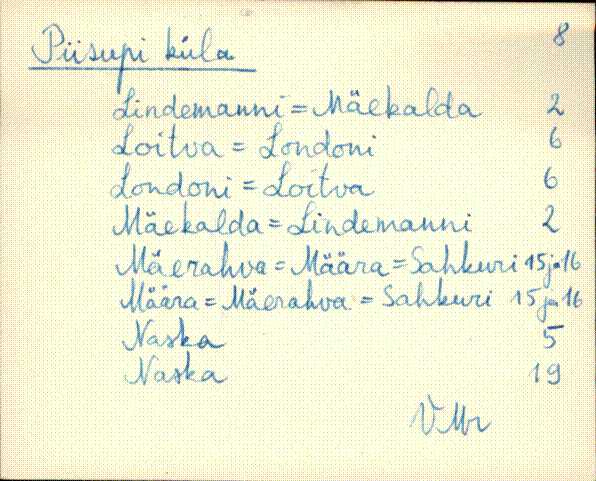 Piisupi küla 8
Lindemanni = Mäekalda 2
Loitva = Londoni 6
Londoni = Loitva 6
Mäekalda = Lindemanni 2
Mäerahva = Määra = Sahkuri 15 ja 16
Määra = Mäerahva = Sahkuri 15 ja 16
Naska 5
Naska 19